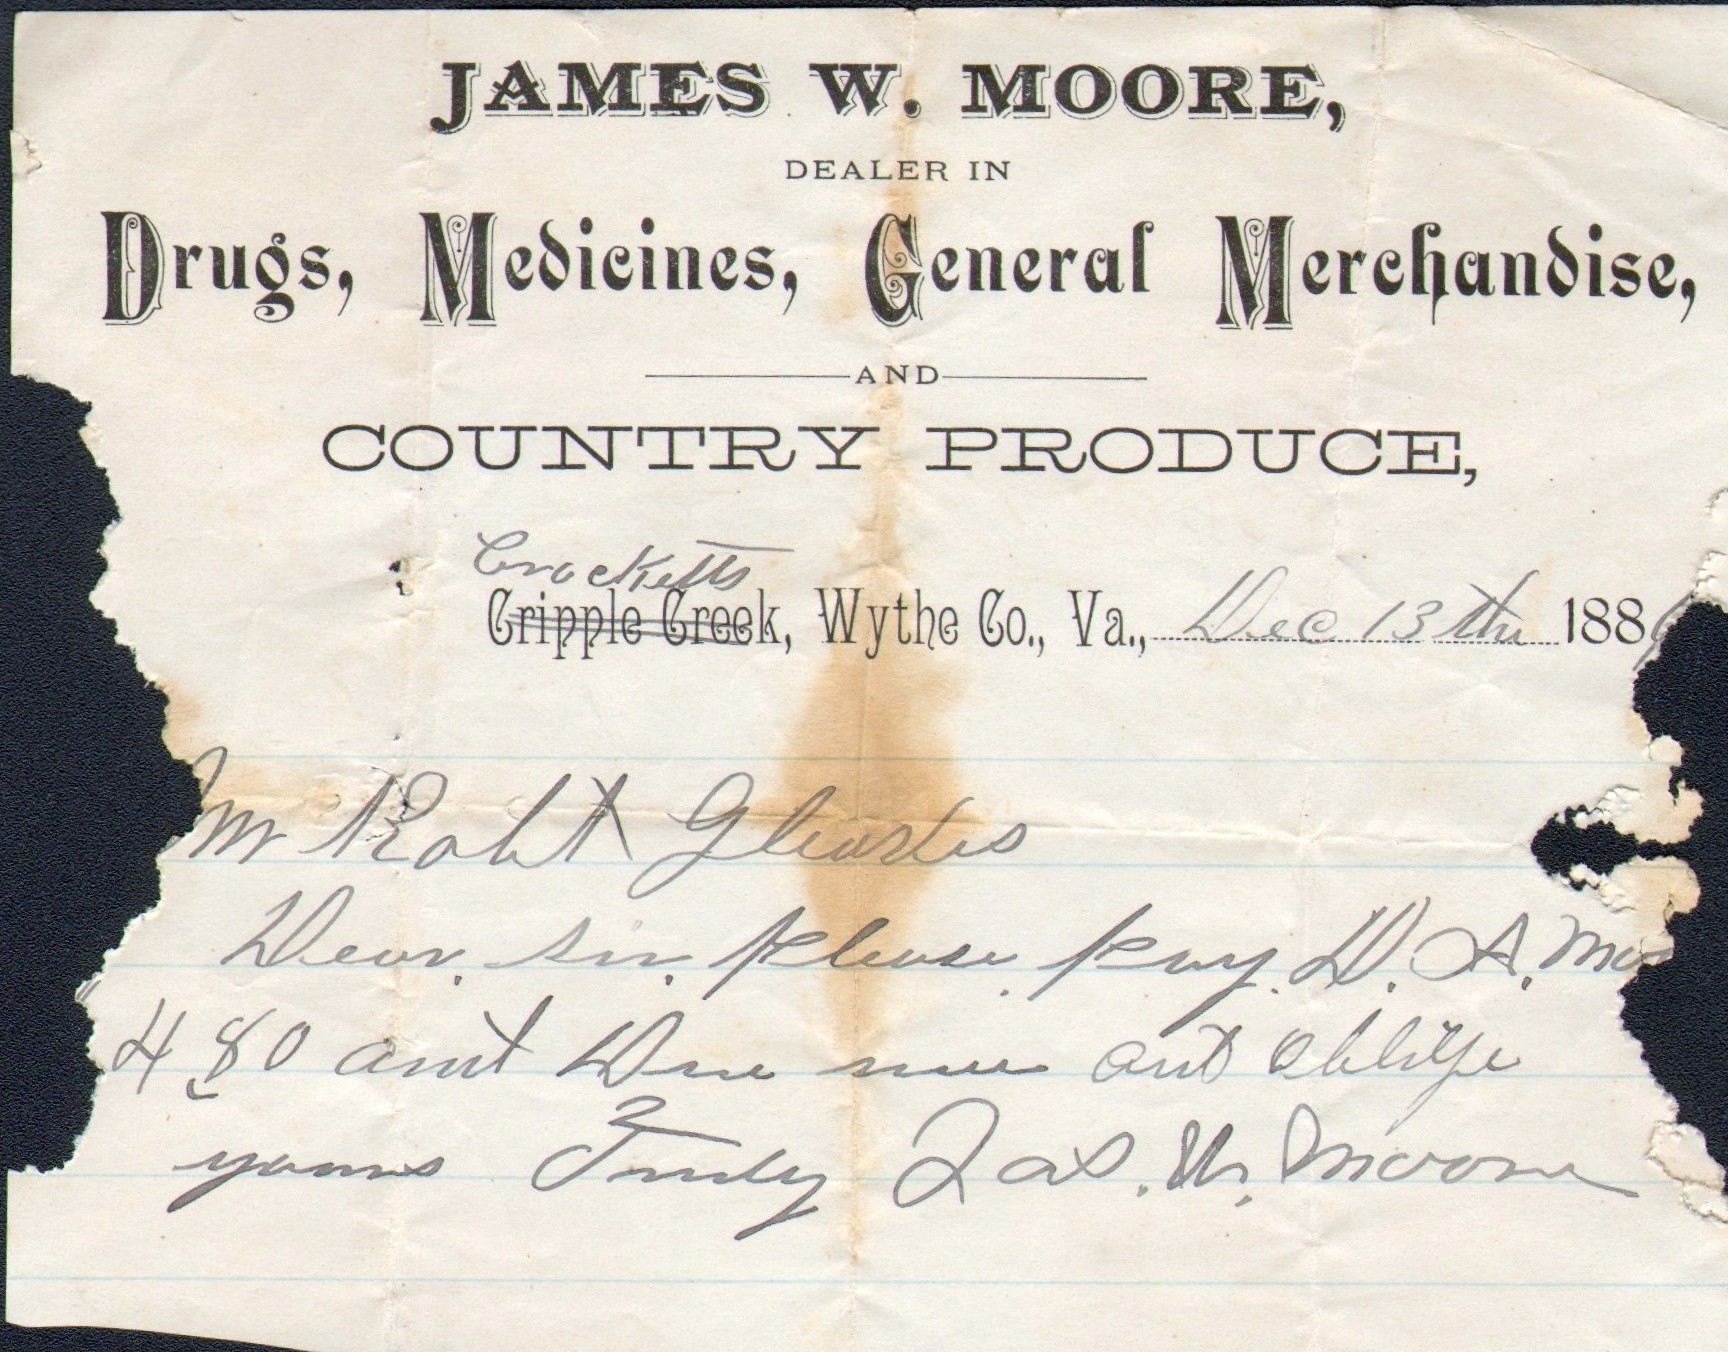 JAMES W. MOORE,
DEALER IN
Drugs, Medicines, General Merchandise,
AND
COUNTRY PRODUCE,
Crocketts
Cripple Creek, Wythe Co., Va., Dec 13th 188
Mr Robt
Dear. Sir. Please. Pay. D. A.
4 80 amt Due me and oblige
yours Truly Jas. W. Moore